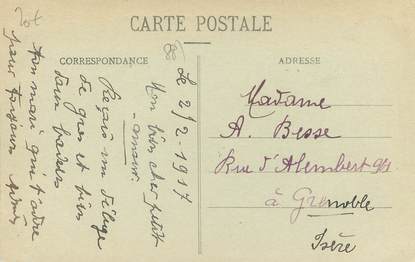 CARTE POSTALE
CORRESPONDANCE
ADRESSE
Le 2/2-1917
Mon bien cher petit
amour.
Reçois un déluge
de gros et bien
doux baisers
Ton mari qui t'adore
pour toujours
Madame
A. Besse
Rue d'Alembert
à Grenoble
Isère